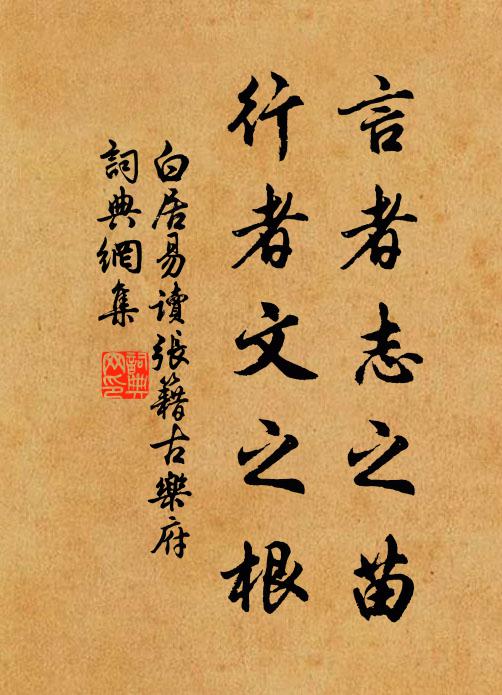 言者志之苗
行者文之根
白居易讀張籍古樂府
詞典網集
詞典
网印